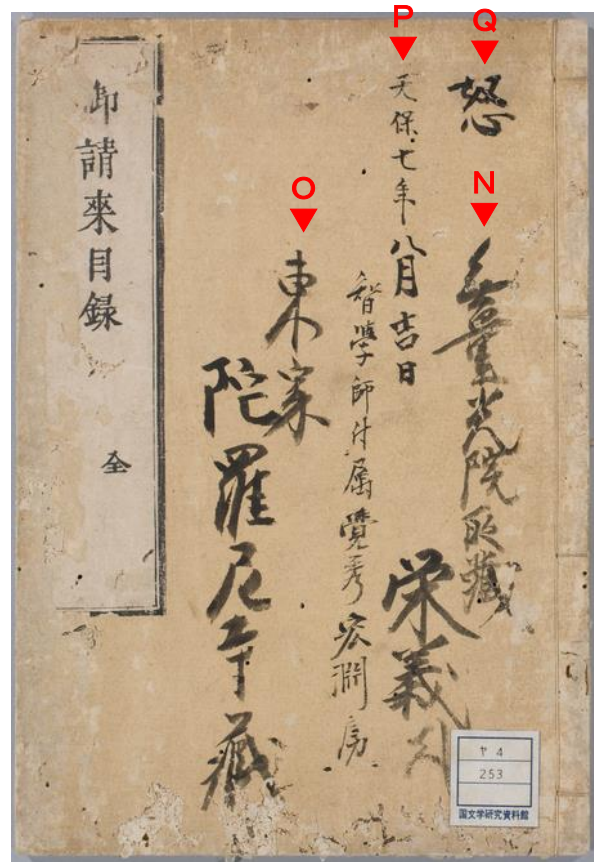 Q
怒
N
無量光院所藏
P
天保七年八月吉日
栄義
智學師付属覺秀宏澗房
O
東家
陀羅尼寺藏
御請來目録 全
ヤ4
253
国文学研究資料館